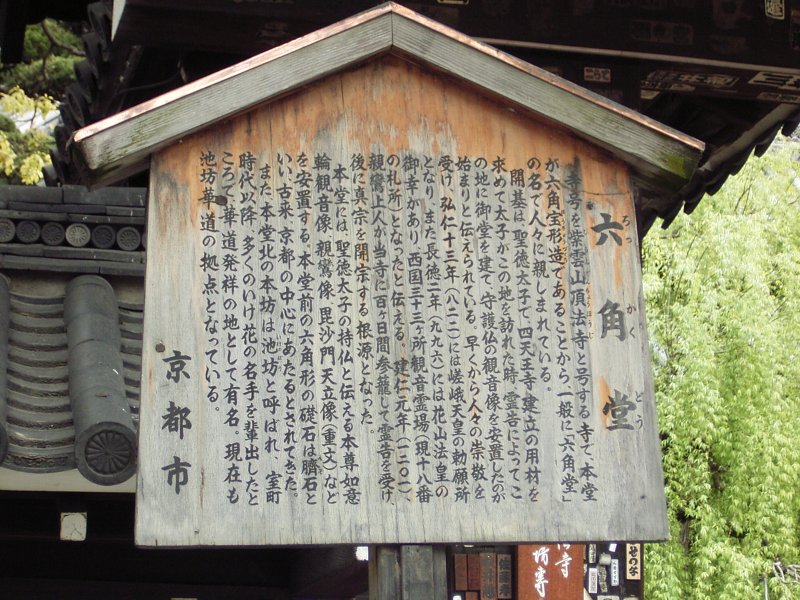 六角堂
ろっかくどう
寺号を紫雲山頂法寺と号する寺で、本堂
ちょうほうじ
が六角宝形造であることから、一般に「六角堂」
の名で人々に親しまれている。
開基は、聖徳太子で、四天王寺建立の用材を
求めて太子がこの地を訪れた時、霊告によってこ
の地に御堂を建て、守護仏の観音像を安置したのが
始まりと伝えられている。早くから人々の崇敬を
受け、弘仁十三年(八二二)には嵯峨天皇の勅願所
となり、また、長徳二年(九九六)には花山法皇の
御幸があり、西国三十三ケ所観音霊場(現十八番
の札所)となったと伝える。建仁元年(一二〇一)、
親鸞上人が当寺に百ヶ日間参籠して霊告を受け、
後に真宗を開宗する根源となった。
本堂には、聖徳太子の持仏と伝える本尊如意
輪観音像、親鸞像、毘沙門天立像(重文)など
を安置する。本堂前の六角形の礎石は臍石と
いい、古来、京都の中心にあたるとされてきた。
また、本堂北の本坊は、池坊と呼ばれ、室町
時代以降、多くのいけ花の名手を輩出したと
ころで、華道発祥の地として有名。現在も
池坊華道の拠点となっている。
京都市